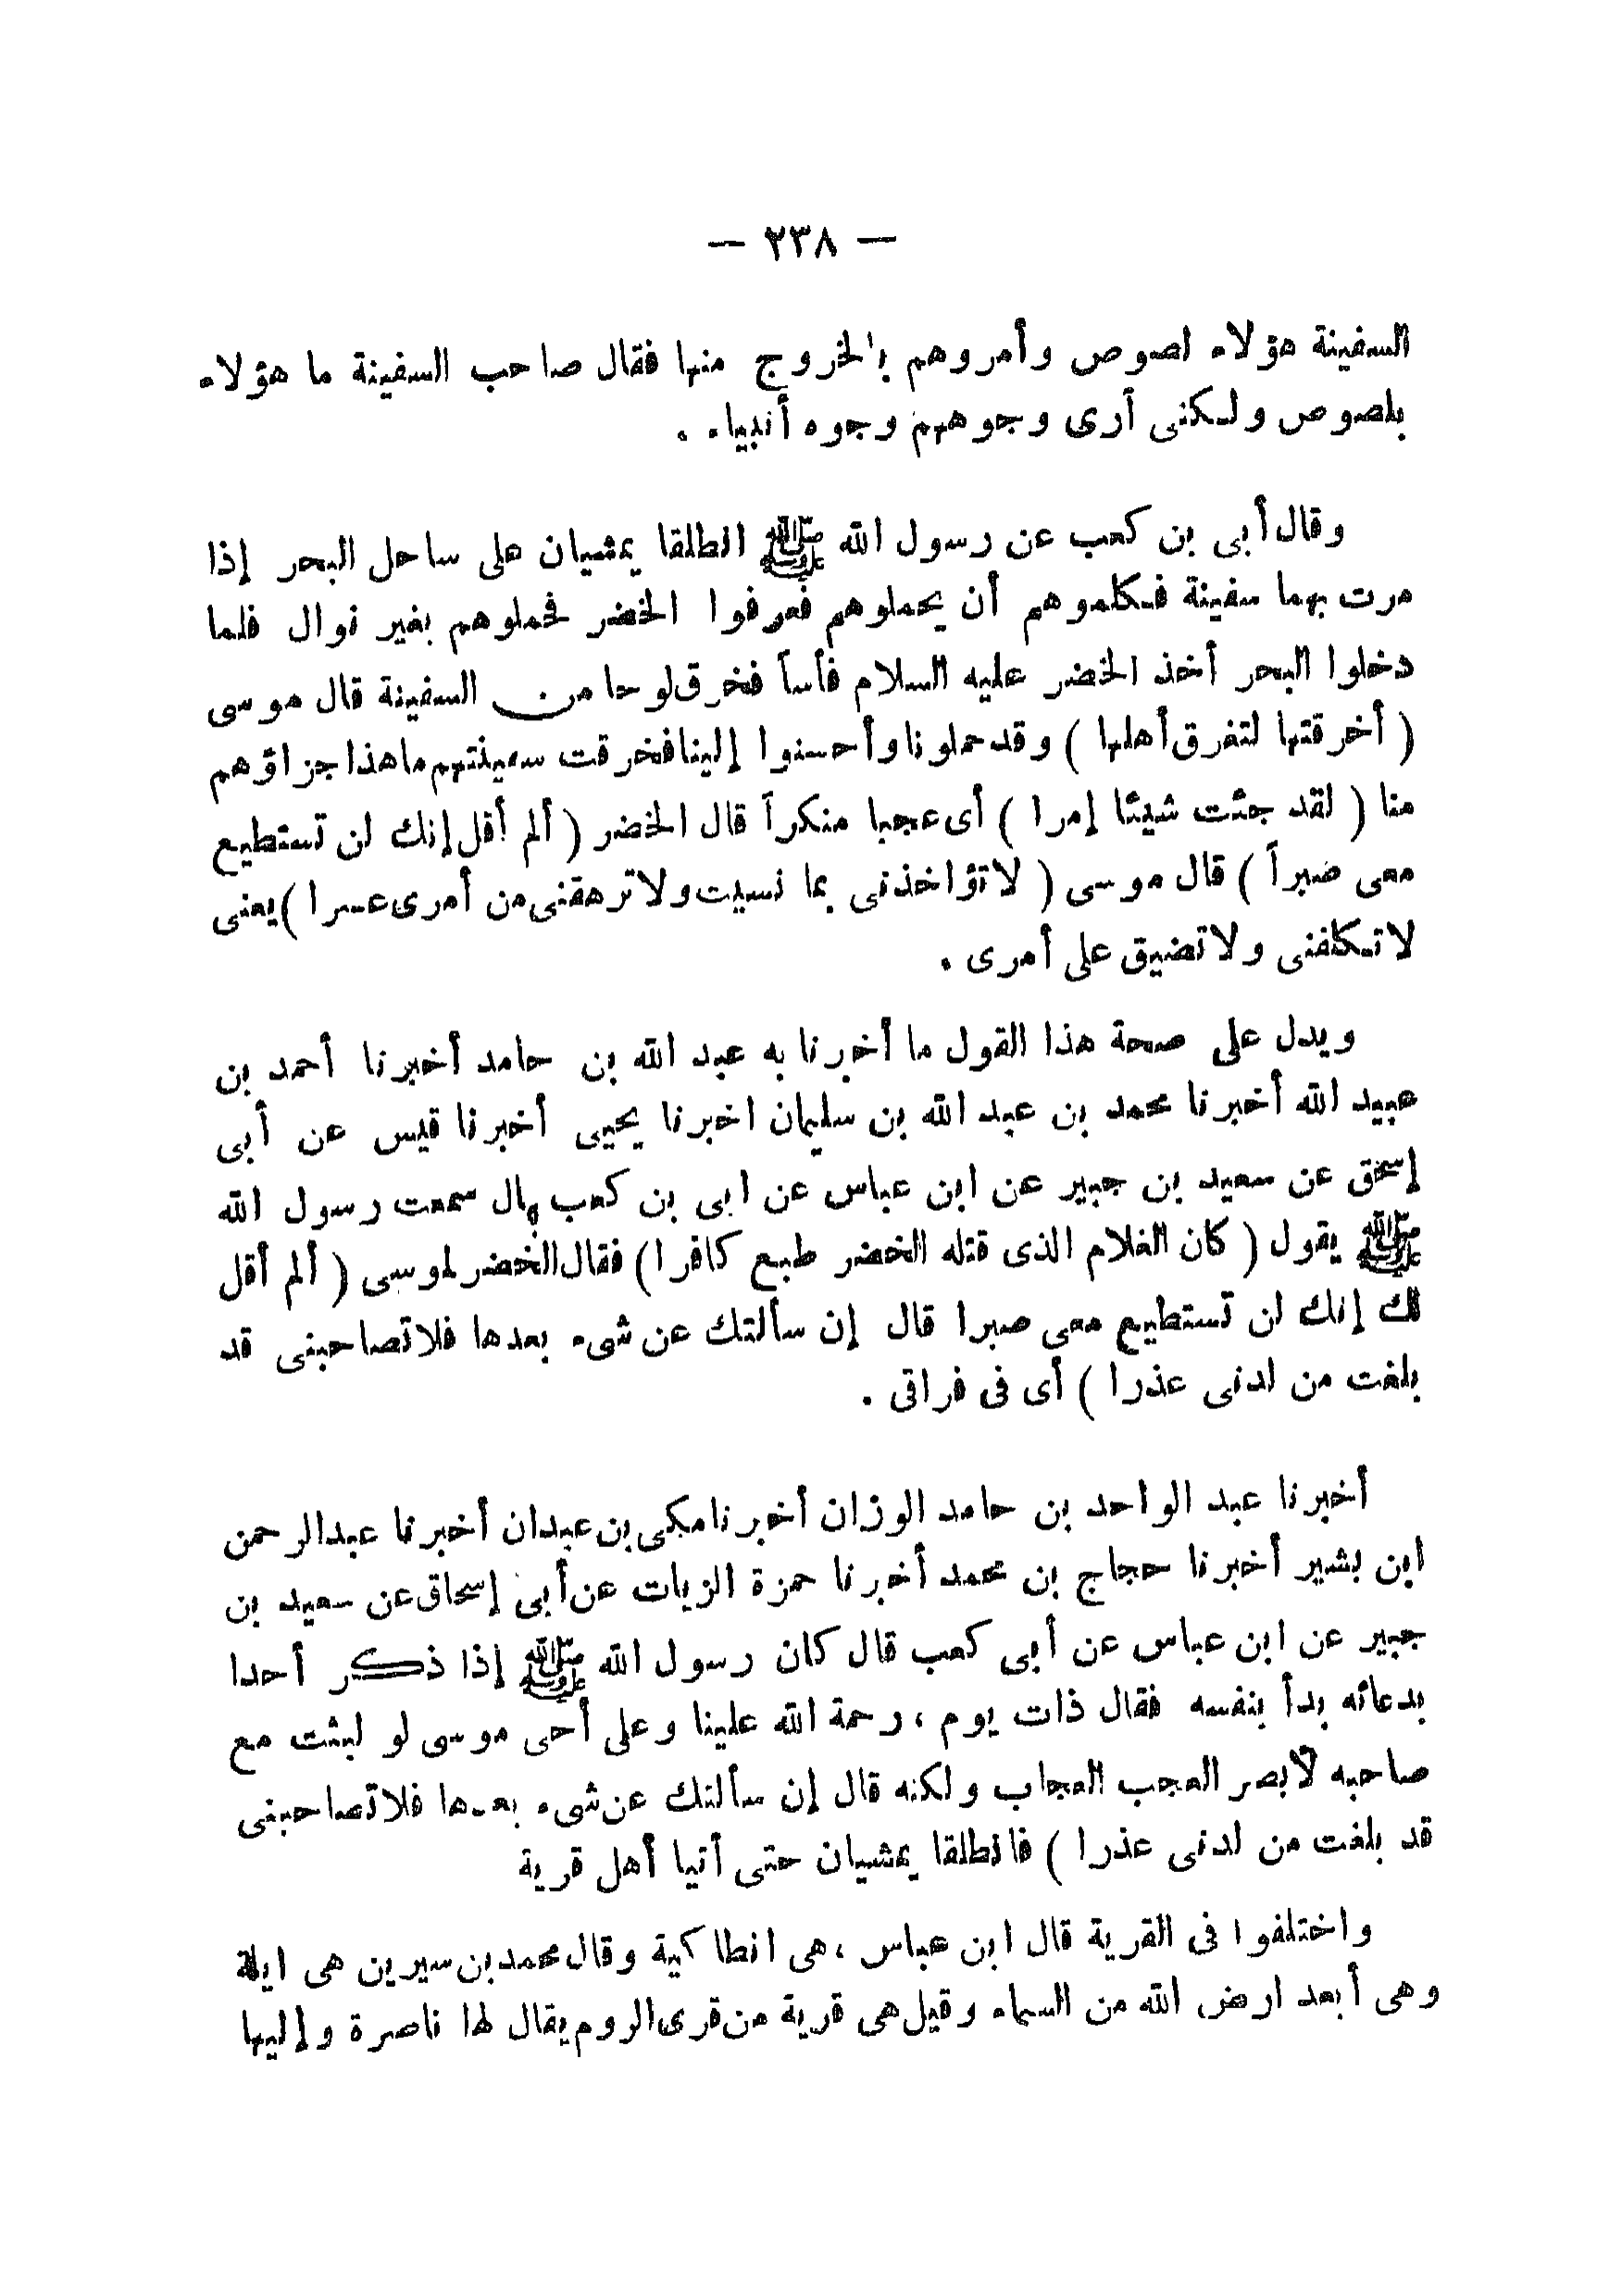 — ٢٣٨ —
السفينة هؤلاء لصوص وأمروهم بالخروج منها فقال صاحب السفينة ما هؤلاء
بلصوص ولكنى أرى وجوههم وجوه أنبياء .
وقال أبى بن كعب عن رسول الله ﷺ انطلقا يمشيان على ساحل البحر إذا
مرت بهما سفينة فكلموهم أن يحملوهم فعرفوا الخضر فحملوهم بغير نوال فلما
دخلوا البحر أخذ الخضر عليه السلام فأساً فخرق لوحا من السفينة قال موسى
( أخرقتها لتغرق أهلها ) وقد حملونا وأحسنوا إلينا فخرقت سفينتهم ما هذا جزاؤهم
منا ( لقد جئت شيئا إمرا ) أى عجبا منكراً قال الخضر ( ألم أقل إنك لن تستطيع
معى ضبراً ) قال موسى ( لا تؤاخذنى بما نسيت ولا ترهقنى من أمرى عسرا ) يعنى
لا تكلفنى ولا تضيق على أمرى .
ويدل على صحة هذا القول ما أخبرنا به عبد الله بن حامد أخبرنا أحمد بن
عبيد الله أخبرنا محمد بن عبد الله بن سليمان اخبرنا يحيى أخبرنا قيس عن أبى
إسحق عن سعيد بن جبير عن ابن عباس عن ابى بن كعب قال سمعت رسول الله
ﷺ يقول ( كان الغلام الذى قتله الخضر طبع كافرا ) فقال الخضر لموسى ( ألم أقل
لك إنك لن تستطيع معى صبرا قال إن سألتك عن شىء بعدها فلا تصاحبنى قد
بلغت من لدنى عذرا ) أى فى فراقى .
أخبرنا عبد الواحد بن حامد الوزان أخبرنا مكى بن عبدان أخبرنا عبد الرحمن
ابن بشير أخبرنا حجاج بن محمد أخبرنا حمزة الزيات عن أبى إسحاق عن سعيد بن
جبير عن ابن عباس عن أبى كعب قال كان رسول الله ﷺ إذا ذكر أحدا
بدعائه بدأ بنفسه فقال ذات يوم ، رحمة الله علينا وعلى أخى موسى لو لبثت مع
صاحبه لأبصر العجب العجاب ولكنه قال إن سألتك عن شىء بعدها فلا تصاحبنى
قد بلغت من لدنى عذرا ) فانطلقا يمشيان حتى أتيا أهل قرية
واختلفوا فى القرية قال ابن عباس ، هى انطاكية وقال محمد بن سيرين هى ايلة
وهى أبعد ارض الله من السماء وقيل هى قرية من قرى الروم يقال لها ناصرة وإليها